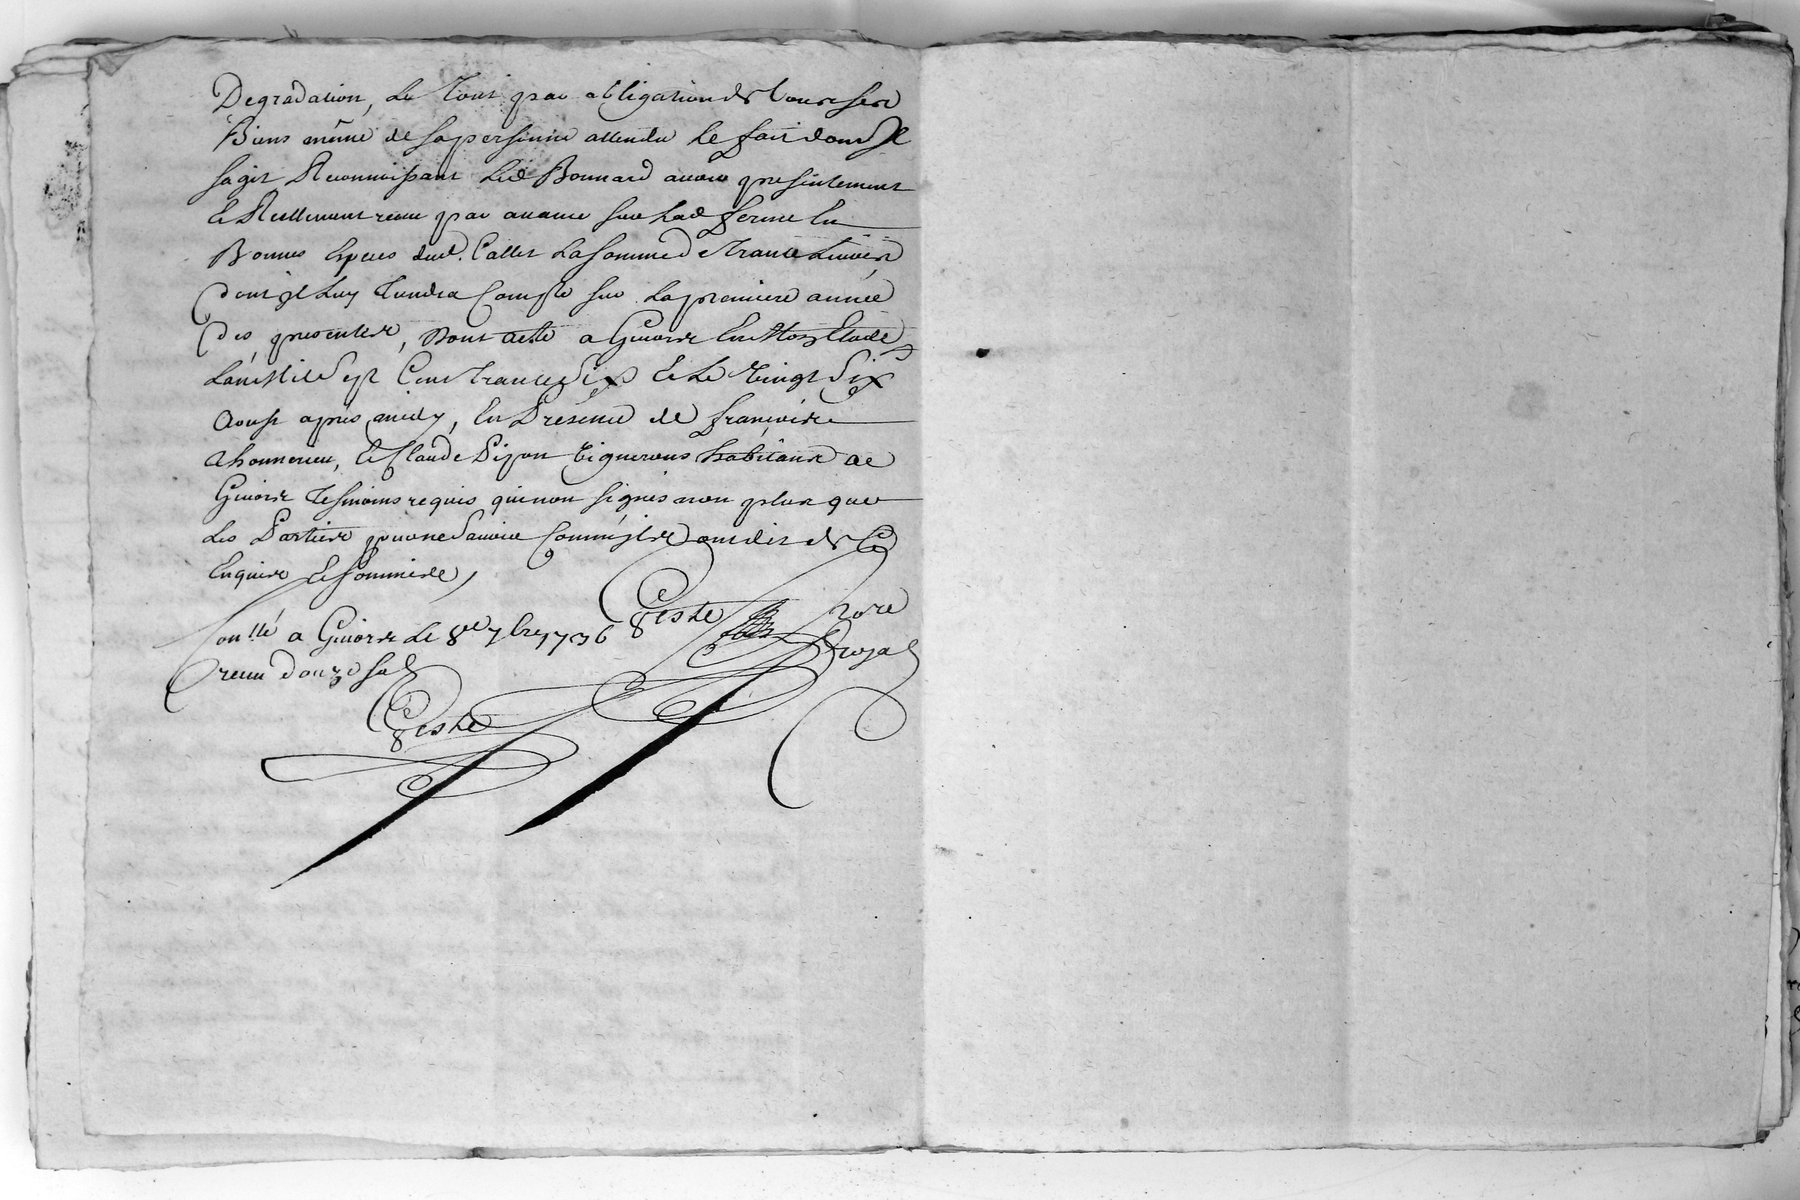 Degradation, Le Tout par obligation de tous ses
Biens même de sa personne attendu le fait dont Il
sagit Reconnoissant Led Bonnard avoir presentement
& Reellement receu par avance sur lad ferme En
Bonnes Especes dud. Callet La somme de Trante Livres
dont Il Luy Tiendra Compte sur La premiere année
des presentes, Dont acte a Givors En Mon Etude
Lan Mil Sept Cens Trante Six & Le Vingt Six
Aoust apres midy, En Presence de françois
& Claude Vignerons habitans de
Givors Tesmoins requis qui non signés non plus que
Les Parties pour ne Savoir Comme Ils ont dit de Ce
Enquis & Sommés,
Con.llé a Givors Le 8e 7bre 1736 Geste Nore
receu douze sols Royal
Geste